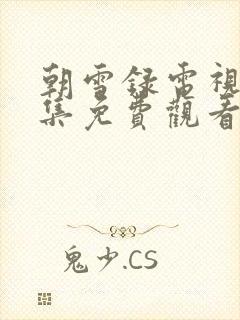 朝雪録電視
集免費觀看
鬼少.CS